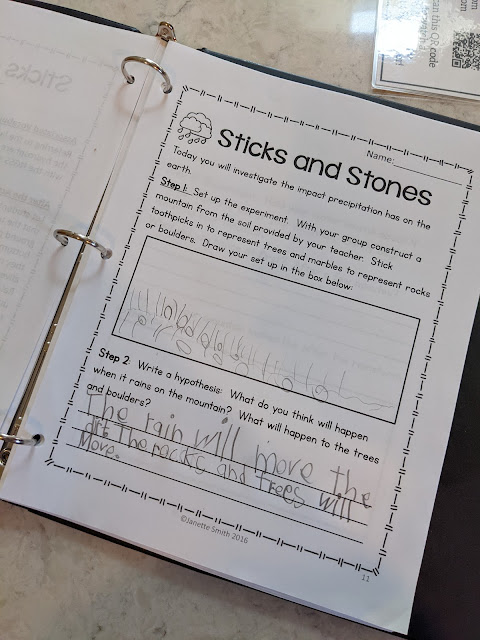 can this QR code
Sticks
Name:
Sticks and Stones
Today you will investigate the impact precipitation has on the
earth.
Step 1: Set up the experiment. With your group construct a
mountain from the soil provided by your teacher. Stick
toothpicks in to represent trees and marbles to represent rocks
or boulders. Draw your set up in the box below:
Step 2: Write a hypothesis: What do you think will happen
when it rains on the mountain? What will happen to the trees
and boulders?
The rain will move the
dirt The rocks and trees will
Move.
©Janette Smith 2016
11